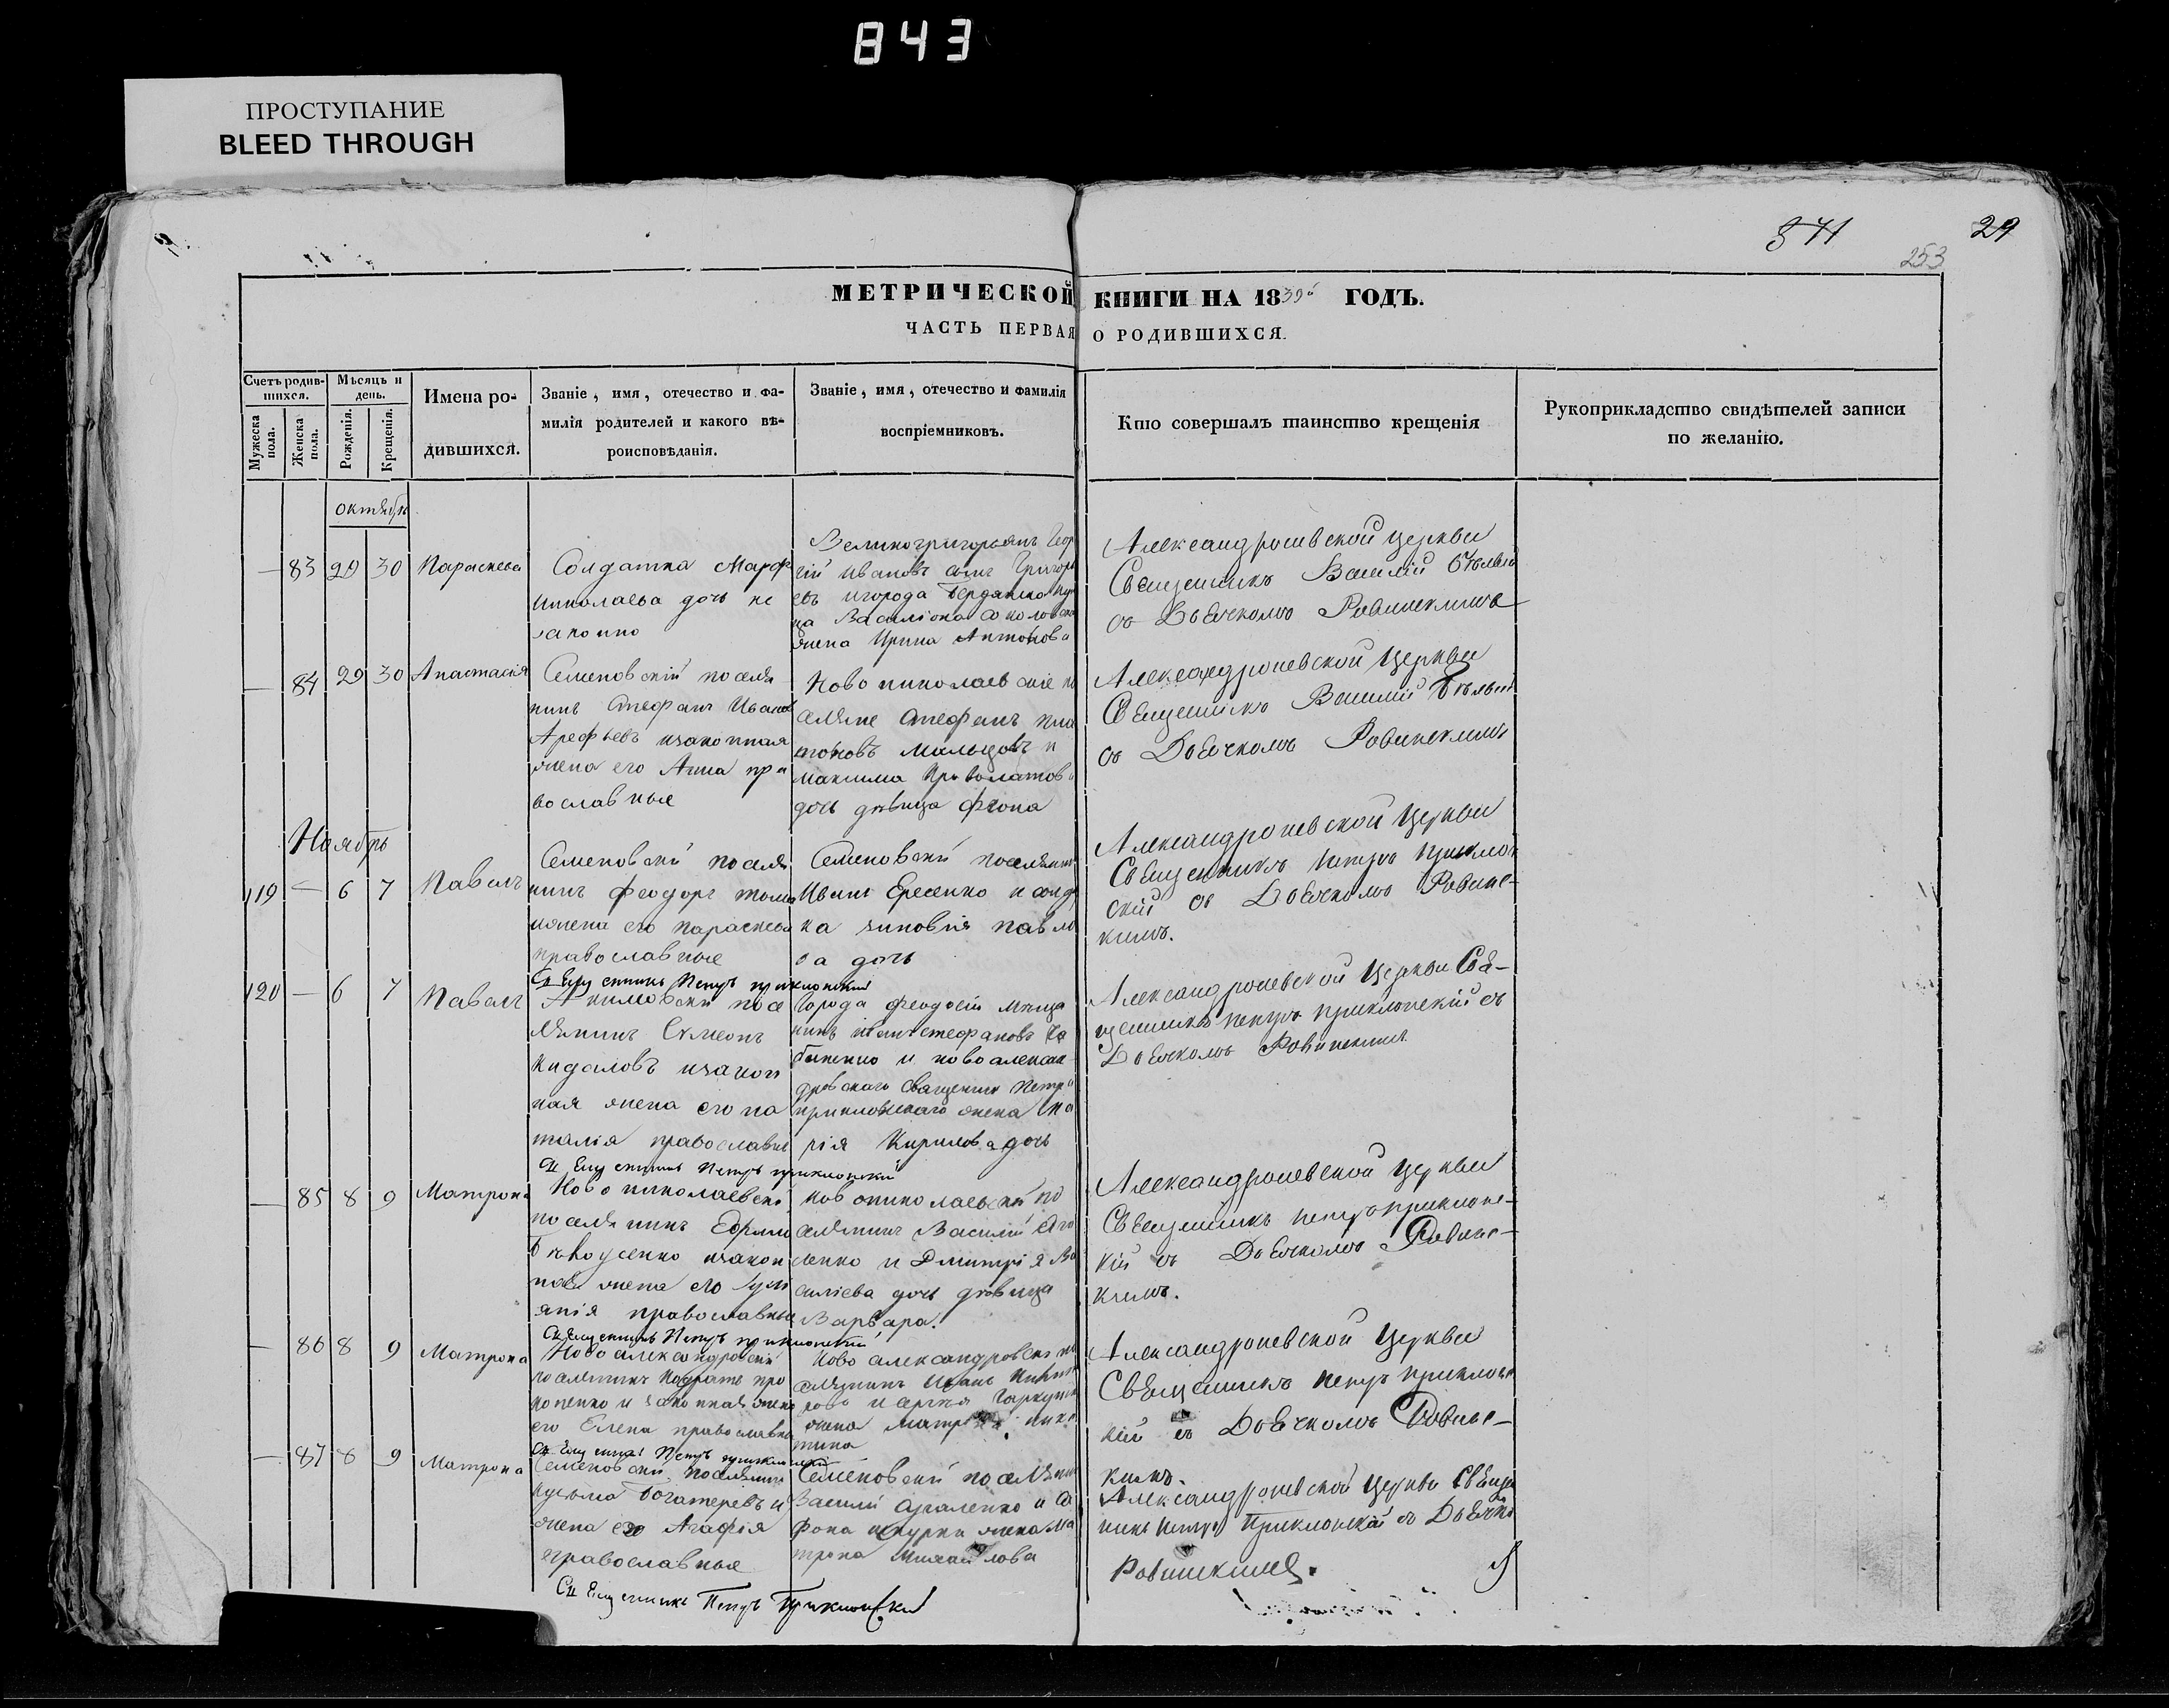 843
ПРОСТУПАНИЕ
BLEED THROUGH
841
29
253
МЕТРИЧЕСКОЙ КНИГИ НА 1839й ГОДЪ.
ЧАСТЬ ПЕРВАЯ О РОДИВШИХСЯ.
Счетъ родив-
шихся.
Мужеска пола.
Женска пола.
Мѣсяцъ и
день.
Рожденія.
Крещенія.
Имена ро-
дившихся.
Званіе, имя, отечество и фа-
милія родителей и какого вѣ-
роисповѣданія.
Званіе, имя, отечество и фамилія
воспріемниковъ.
Кто совершалъ таинство крещенія
Рукоприкладство свидѣтелей записи
по желанію.
октябрь
— 83 29 30 Параскева
Солдатка Марфа
николаева дочь не
законно
гій Ивановъ сынъ Григорь
евъ игорода Бердянска
жена Ирина Антонова
Александроневской церкви
Священникъ Василій Бѣлый
съ Дьячкомъ Ровинскимъ
— 84 29 30 Анастасія
Семеновскій поселя
нинъ Стефанъ Иванов
Арефьевъ изаконная
жена его Анна пра
вославные
Новониколаевскіе по
селяне Стефанъ пла
тоновъ Мальцовъ и
максима
дочь дѣвица
Александроневской Церкви
Священникъ Василій Бѣлый
съ Дьячкомъ Ровинскимъ
Ноябрь
119 — 6 7 Павелъ
Семеновскій поселя
нинъ Феодоръ
ижена его параскева
православные
Семеновскій поселянинъ
Иванъ Ересенко и солдат
ка зиновія павло
ва дочь
Александроневской Церкви
Священникъ петръ приклон
скій съ Дьячкомъ Ровинс-
кимъ.
Священникъ Петръ приклонскій
120 — 6 7 Павелъ
Акимовскій посе
лянинъ Симеонъ
Кидаловъ изакон
ная жена его на
талія православные
Города феодосіи мѣща
нинъ иванъ стефановъ
и новоалексан
дровскаго священник Петра
приклонскаго жена Ма
рія Кирилова дочь
Александроневской Церкви Свя-
щенникъ петръ приклонскій съ
Дьячкомъ Ровинскимъ
Священникъ Петръ приклонскій
— 85 8 9 Матрона
Новониколаевскій
поселянинъ Ефрем
Бѣлоусенко изакон
ная жена его Ули
янія православные
новониколаевскій по
селянинъ Василій
сенко и Дмитрія Ва
силіева дочь дѣвица
Варвара.
Александроневской Церкви
Священникъ петръ приклонс-
кій съ Дьячкомъ Ровинс-
кимъ.
Священникъ Петръ приклонскій
— 86 8 9 Матрона
Новоалександровскій
поселянинъ Кодратъ про
копенко и законная жена
его Елена православные
Новоалександровскій по
селянинъ Иванъ
жена
Александроневской Церкви
Священникъ петръ приклонс
кій съ Дьячкомъ Ровинс-
кимъ.
Священникъ Петръ приклонскій
— 87 8 9 Матрона
Семеновскій поселянин
кузьма Богатеревъ и
жена его Агафія
православные
Семеновскій поселянин
Василій и Са
фона жена Ма
трона Михайлова
Александроневской Церкви Священ
никъ Петръ Приклонскій съ Дьячко
Ровинскимъ.
Священникъ Петръ Приклонскій